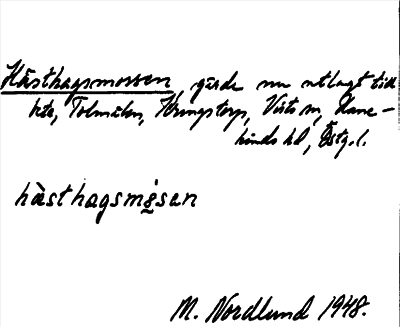 Hästhagsmossen, gärde nu utlagt till
bete, Tolmålen, Kringstorp, Vists sn, Hane-
kinds hd, Östg.l.
hàsthagsmósen
M. Nordlund 1948.